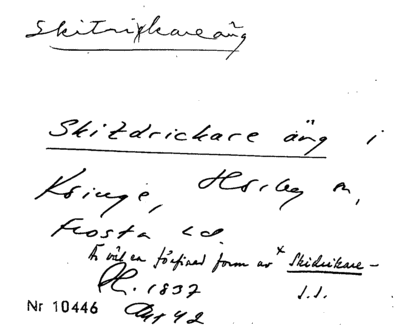 Skitrickareäng
Skitdrickare äng i
Kringe, Hörby sn,
Frosta hd.
Är väl en förfinad form av * Skidrikare-
1837 s.s.
Nr 10446 42